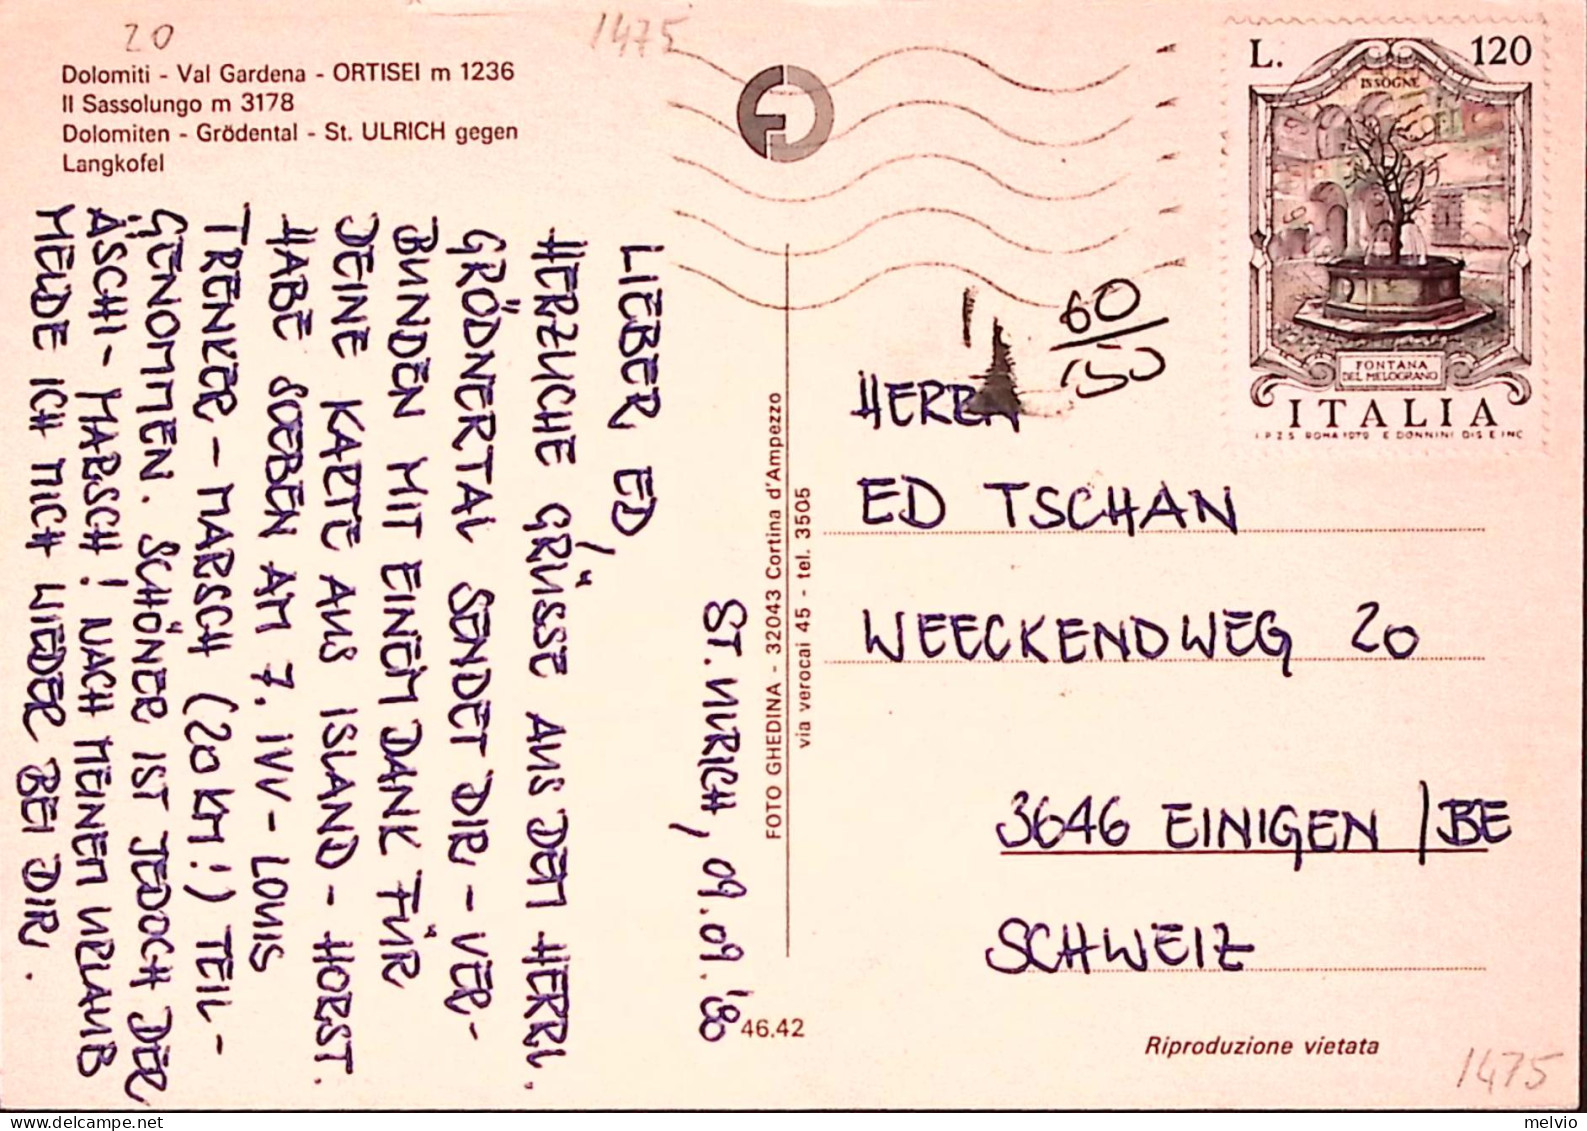 20
1475
Dolomiti - Val Gardena - ORTISEI m 1236
Il Sassolungo m 3178
Dolomiten - Grödental - St. ULRICH gegen
Langkofel
ST. ULRICH, 09.09.'80
LIEBER ED,
HERZLICHE GRÜSSE AUS DEM HERRL.
GRÖDNERTAL SENDET DIR - VER-
BUNDEN MIT EINEM DANK FÜR
DEINE KARTE AUS ISLAND - HORST.
HABE SOEBEN AM 7. IVV - LOUIS
TRENKER - MARSCH (20 KM!) TEIL-
GENOMMEN. SCHÖNER IST JEDOCH DER
ÄSCHI - MARSCH! NACH MEINEM URLAUB
MELDE ICH MICH WIEDER BEI DIR.
FOTO GHEDINA - 32043 Cortina d'Ampezzo
via verocai 45 - tel. 3505
46.42
L. 120
ISSOGNE
FONTANA
DEL MELOGRANO
ITALIA
I.P.Z.S. ROMA 1979 E DONNINI DIS. E INC.
60
150
HERRN
ED TSCHAN
WEECKENDWEG 20
3646 EINIGEN /BE
SCHWEIZ
Riproduzione vietata
1475
melvio